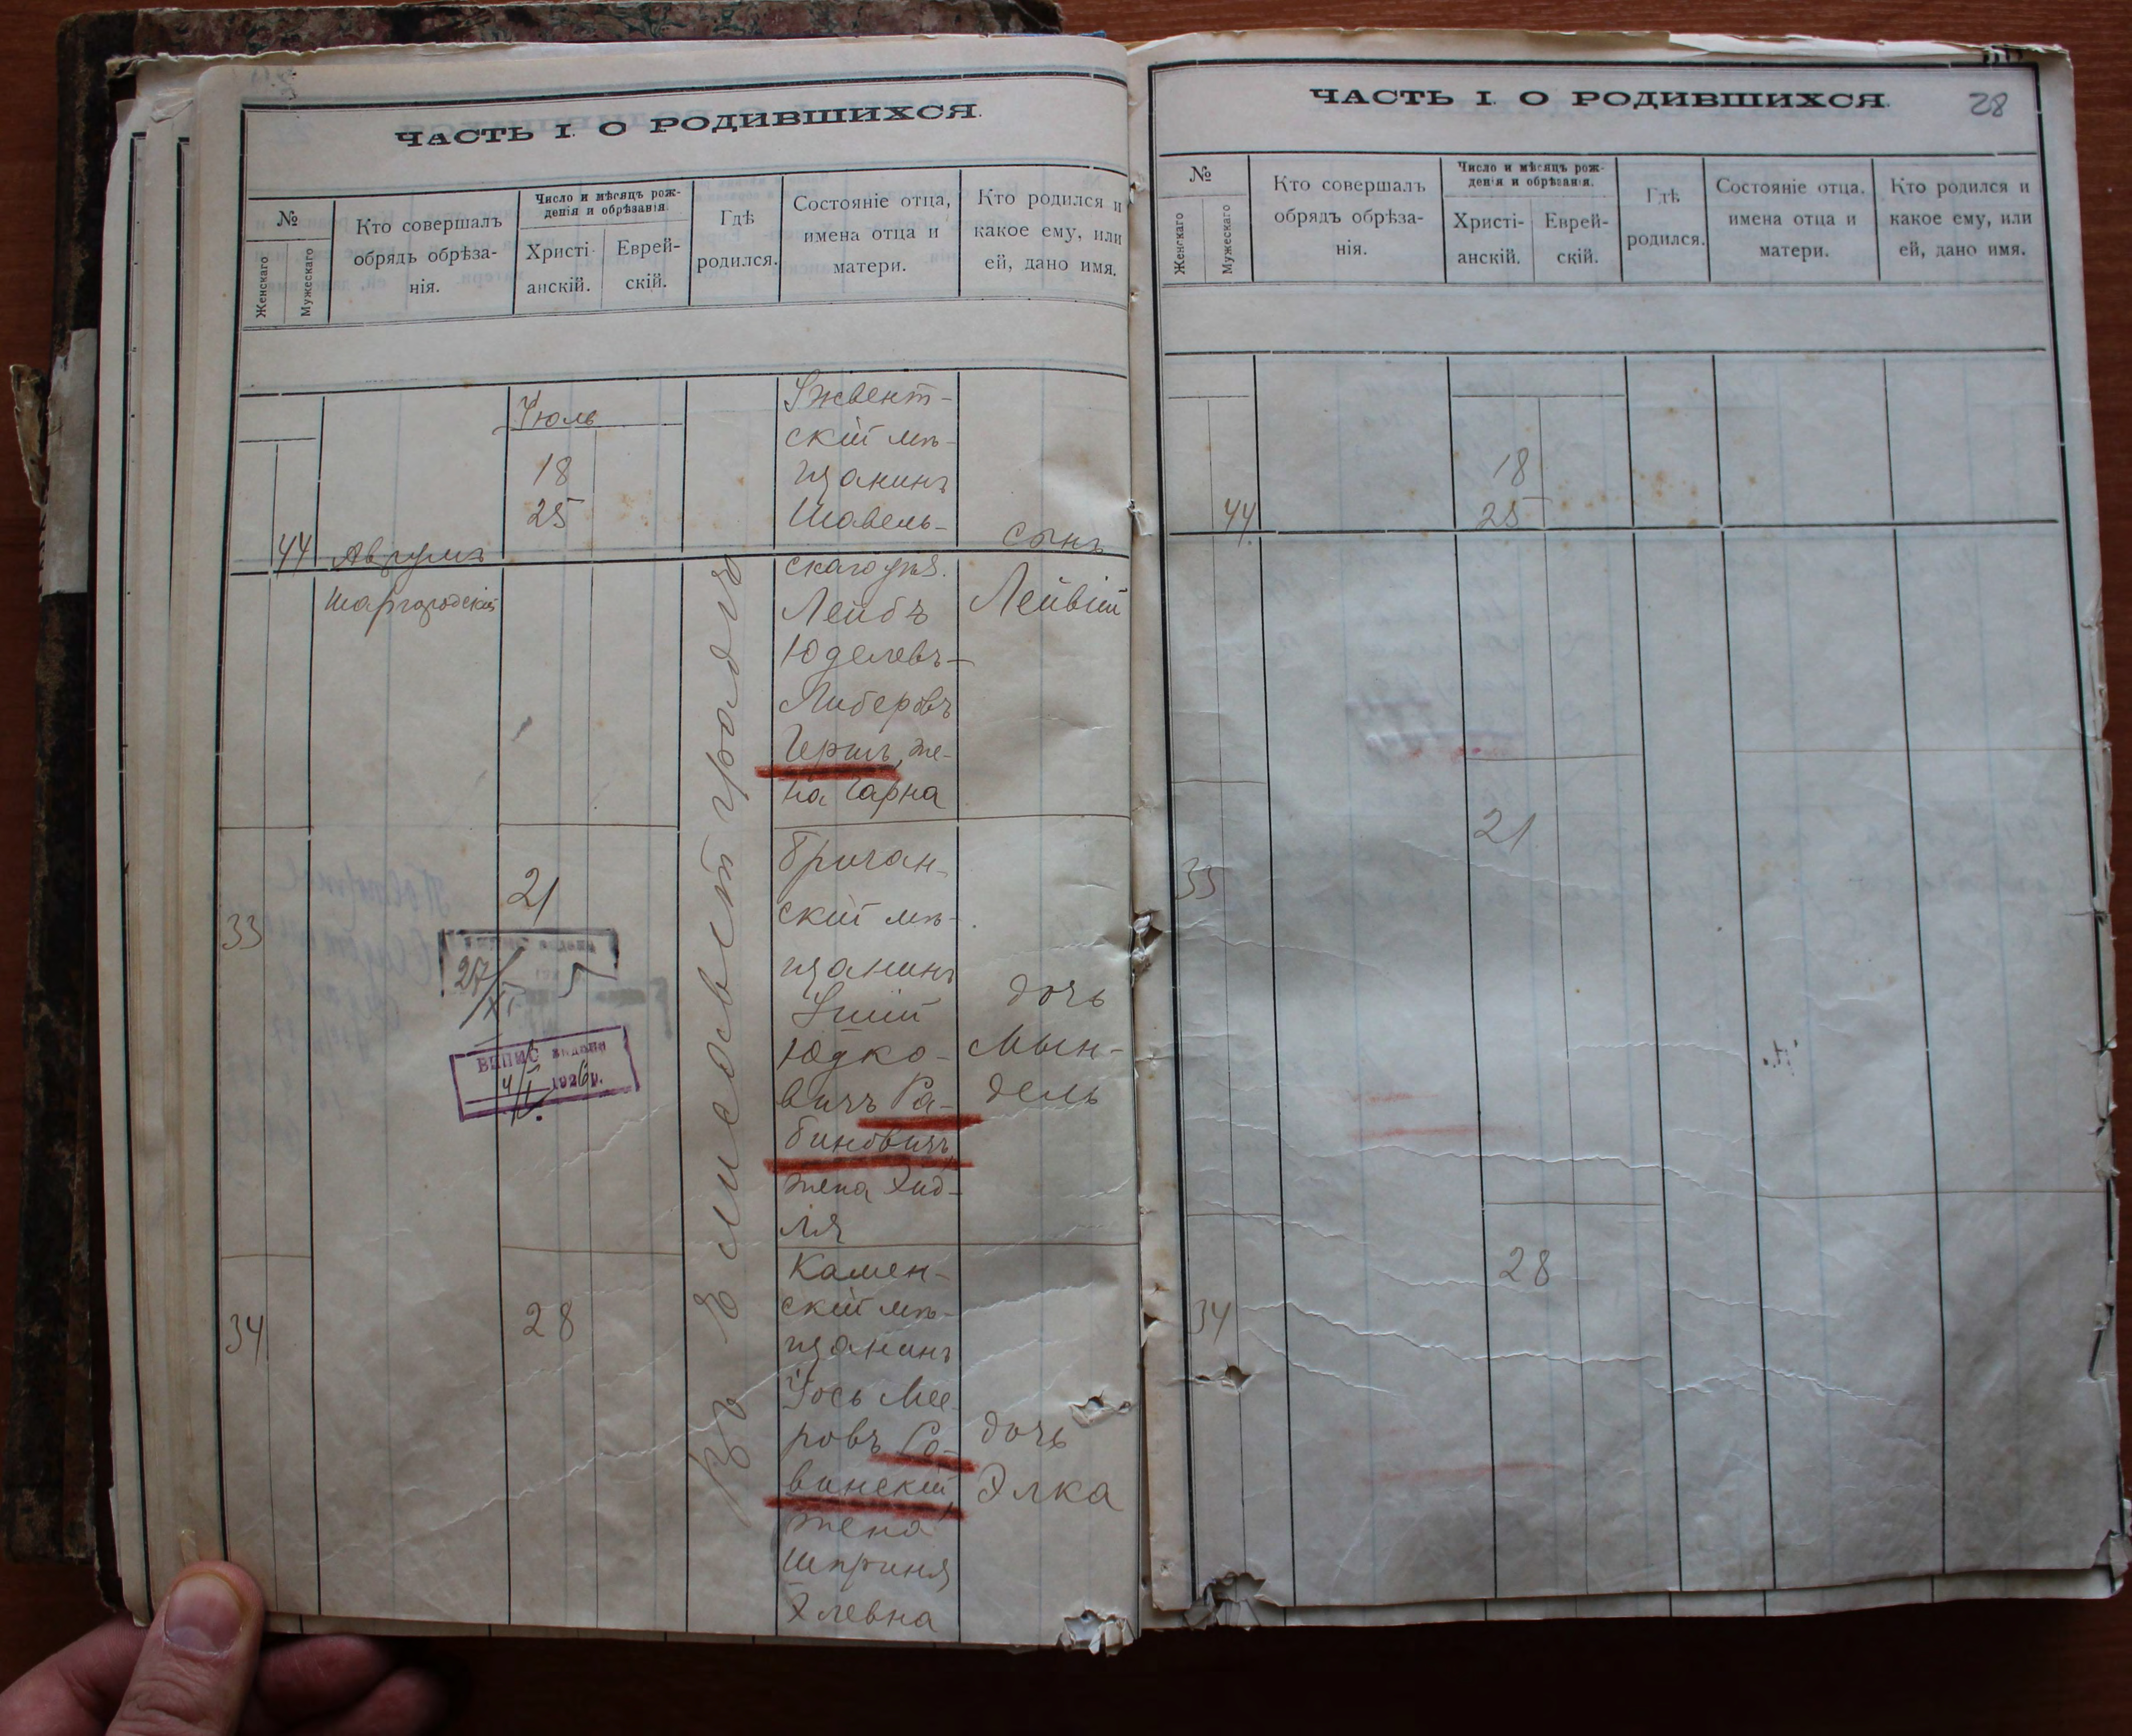 ЧАСТЬ I. О РОДИВШИХСЯ.
№
Женскаго
Мужескаго
Кто совершалъ
обрядъ обрѣза-
нія.
Число и мѣсяцъ рож-
денія и обрѣзанія.
Христі-
анскій.
Еврей-
скій.
Гдѣ
родился.
Состояніе отца,
имена отца и
матери.
Кто родился и
какое ему, или
ей, дано имя.
44
Аврумъ
Шаргородскій
Іюль
18
25
Въ Елисаветградѣ
скій мѣ-
щанинъ
Шавель-
скаго уѣз.
Лейбъ
Юделевъ-
Либеровъ
Гершъ, же-
на Чарна
сынъ
Лейвій
33
21
27/XI 5
ВЫПИС выдана
4/II 1926 г.
Бричан-
скій мѣ-
щанинъ
Юдко-
вичъ Ра-
биновичъ,
жена Хид-
ля
дочь
Мын-
дель
34
28
Камен-
скій мѣ-
щанинъ
Іось Мее-
ровъ Ра-
винскій,
жена
Шприня
Хлевна
дочь
Элка
ЧАСТЬ I. О РОДИВШИХСЯ.
28
№
Женскаго
Мужескаго
Кто совершалъ
обрядъ обрѣза-
нія.
Число и мѣсяцъ рож-
денія и обрѣзанія.
Христі-
анскій.
Еврей-
скій.
Гдѣ
родился.
Состояніе отца,
имена отца и
матери.
Кто родился и
какое ему, или
ей, дано имя.
44
18
25
33
21
34
28